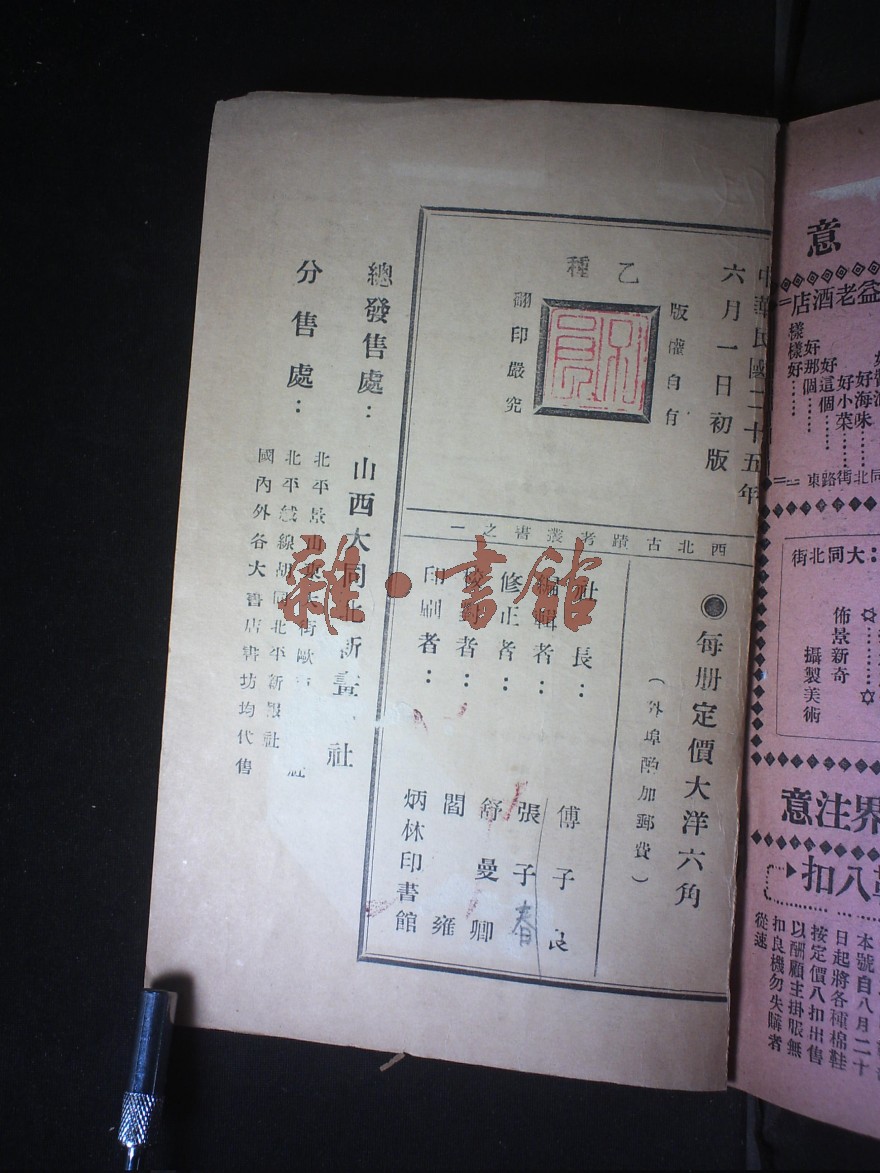 中華民國二十五年
六月一日初版
乙種
版權自有
翻印嚴究
西北古蹟考叢書之一
每册定價大洋六角
(外埠酌加郵費)
社長:傅子良
編輯者:張子春
修正者:舒曼卿
校對者:閻雍
印刷者:炳林印書館
總發售處:山西大同北新畫社
分售處:
北平景山東大街歐
社
北平絨線胡同北平新報社
國內外各大書店書坊均代售
雜·書館
意
益老酒店
好小菜
好這個
好那個
樣樣好
同北街路東
:大同北街
佈景新奇
攝製美術
界注意
八扣
本號自八月二十
日起將各種棉鞋
按定價八扣出售
以酬顧主掛賬無
扣良機勿失購者
從速